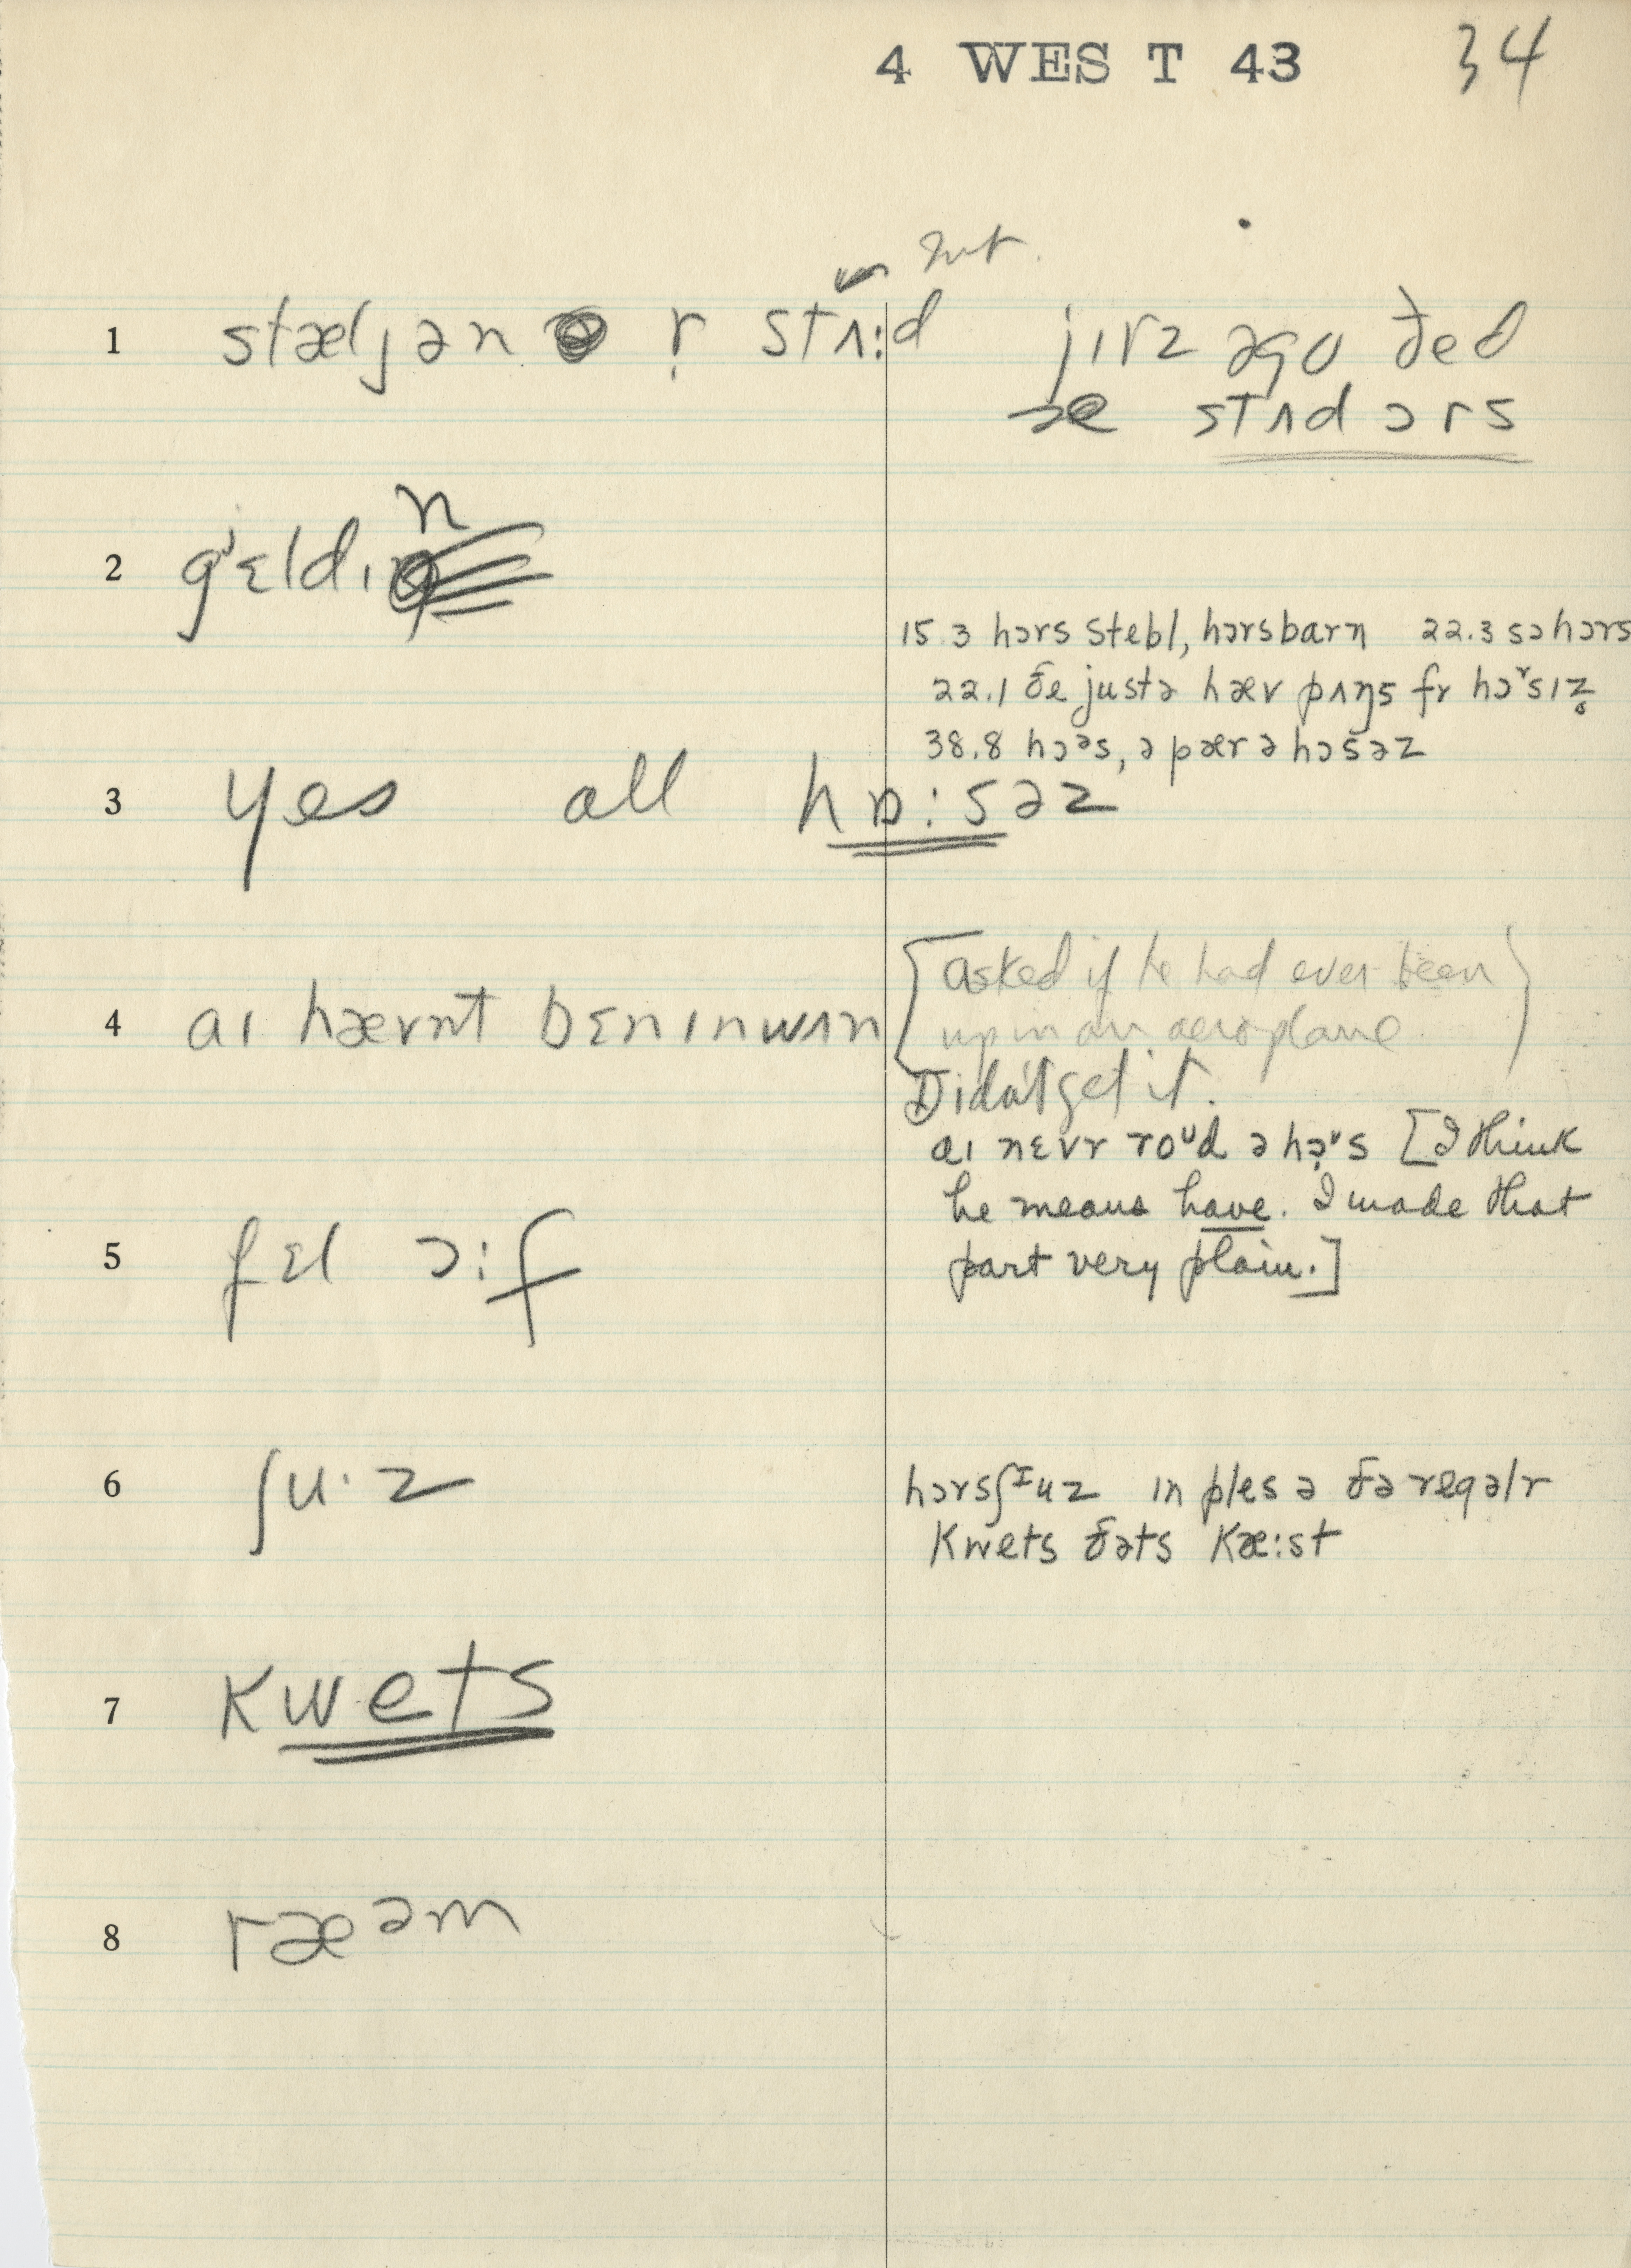 4 WEST 43 34
1 stæljən r̩ stʌ:d jɪrz əgo ðed
se stʌd ɔrs
2 gʲɛldɪn
15.3 hɔrs stebl, hɔrsbarn 22.3 sɔhɔrs
22.1 ðe justə hæv pʌŋs fr hɔʳsɪz̥
38.8 hɔᵊs, ə pær ə hɔsəz
3 yes all hɒ:səz
4 aɪ hævnt bɛnɪnwʌn [asked if he had ever been
up in an aeroplane]
Didn't get it.
aɪ nɛvr roᵘd ə hɔʳs [I think
he means have. I made that
5 fɛl ɔ:f part very plain.]
6 ʃu·z hɔrsʃᶦuz ɪn ples ə ðə regəlr
kwets ðəts kæ:st
7 kwets
8 ræəm